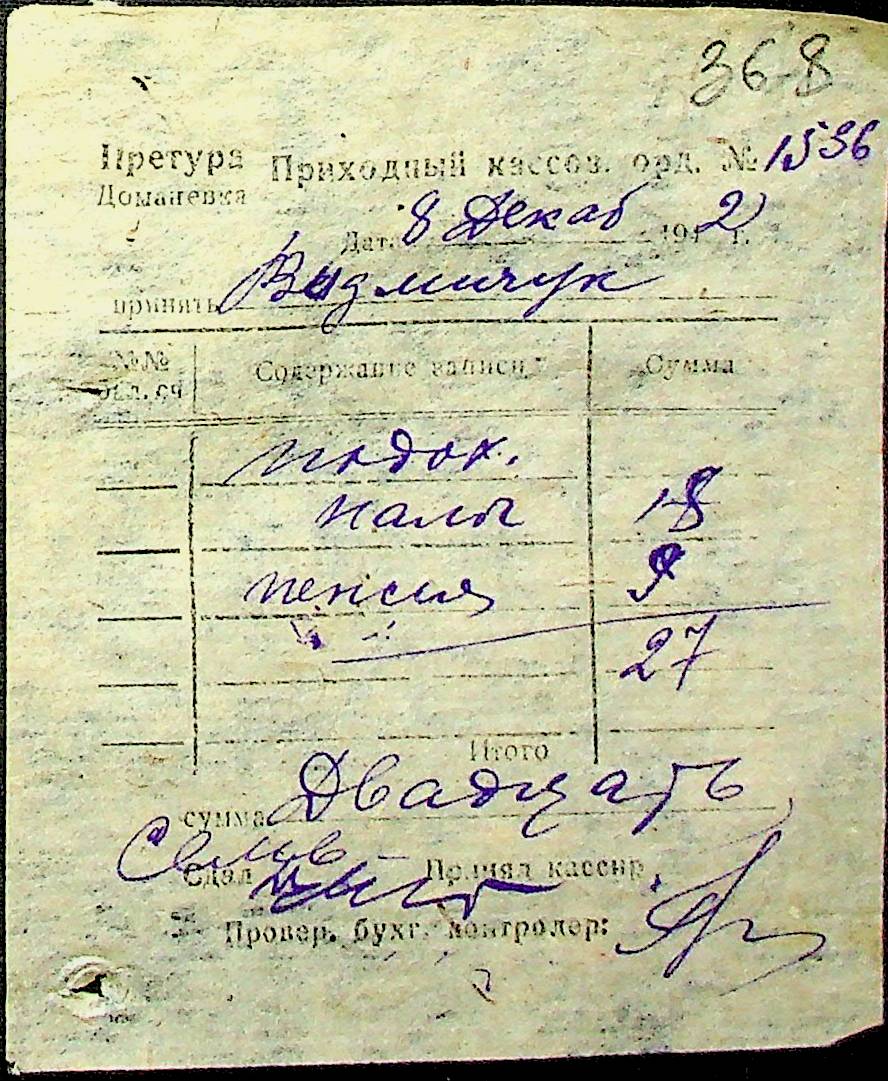 368
Претура Приходный кассов. орд. № 1536
Доманевка
Дата 8 Декаб 194 2 г.
принять Видмичук
№№ Содержание записи Сумма
сч.
подох.
налог 18
пенсия 9
27
Итого
сумма Двадцать
Семь
Сдал Принял кассир
Провер. бухг. контролер: